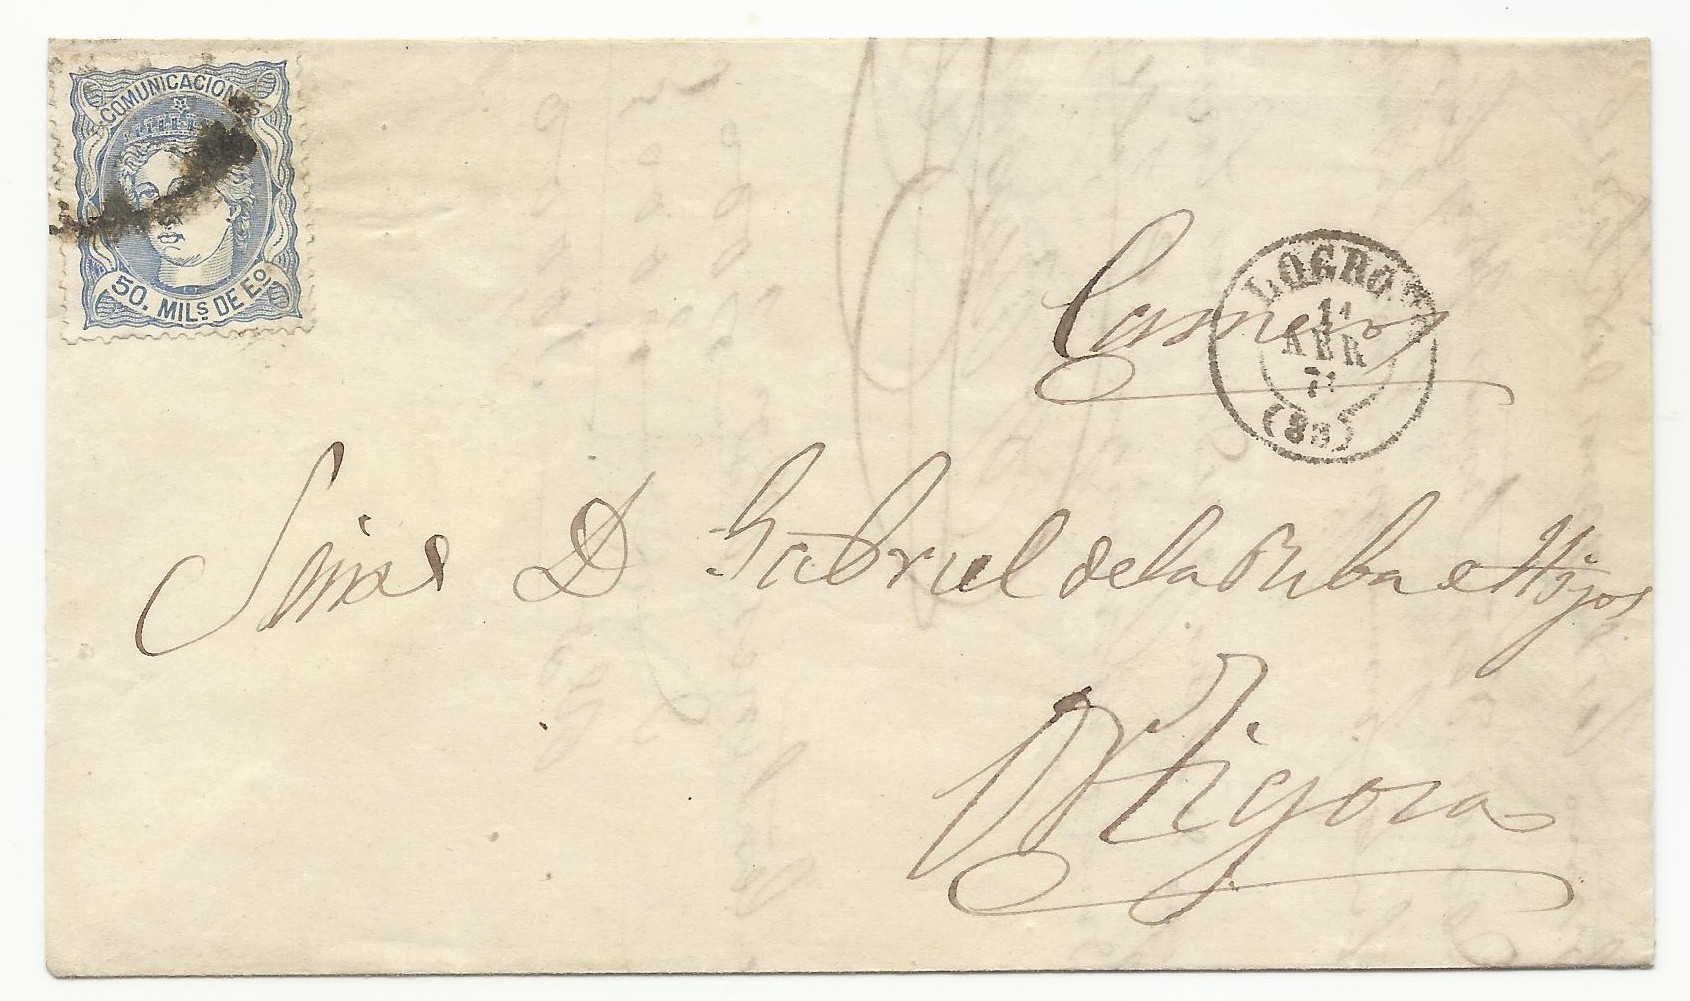 COMUNICACIONES
50. MILS DE Eº
Cameros
LOGROÑO
11
ABR
71
(33)
Sres D Gabriel de la Riba e Hijos
Ortigosa